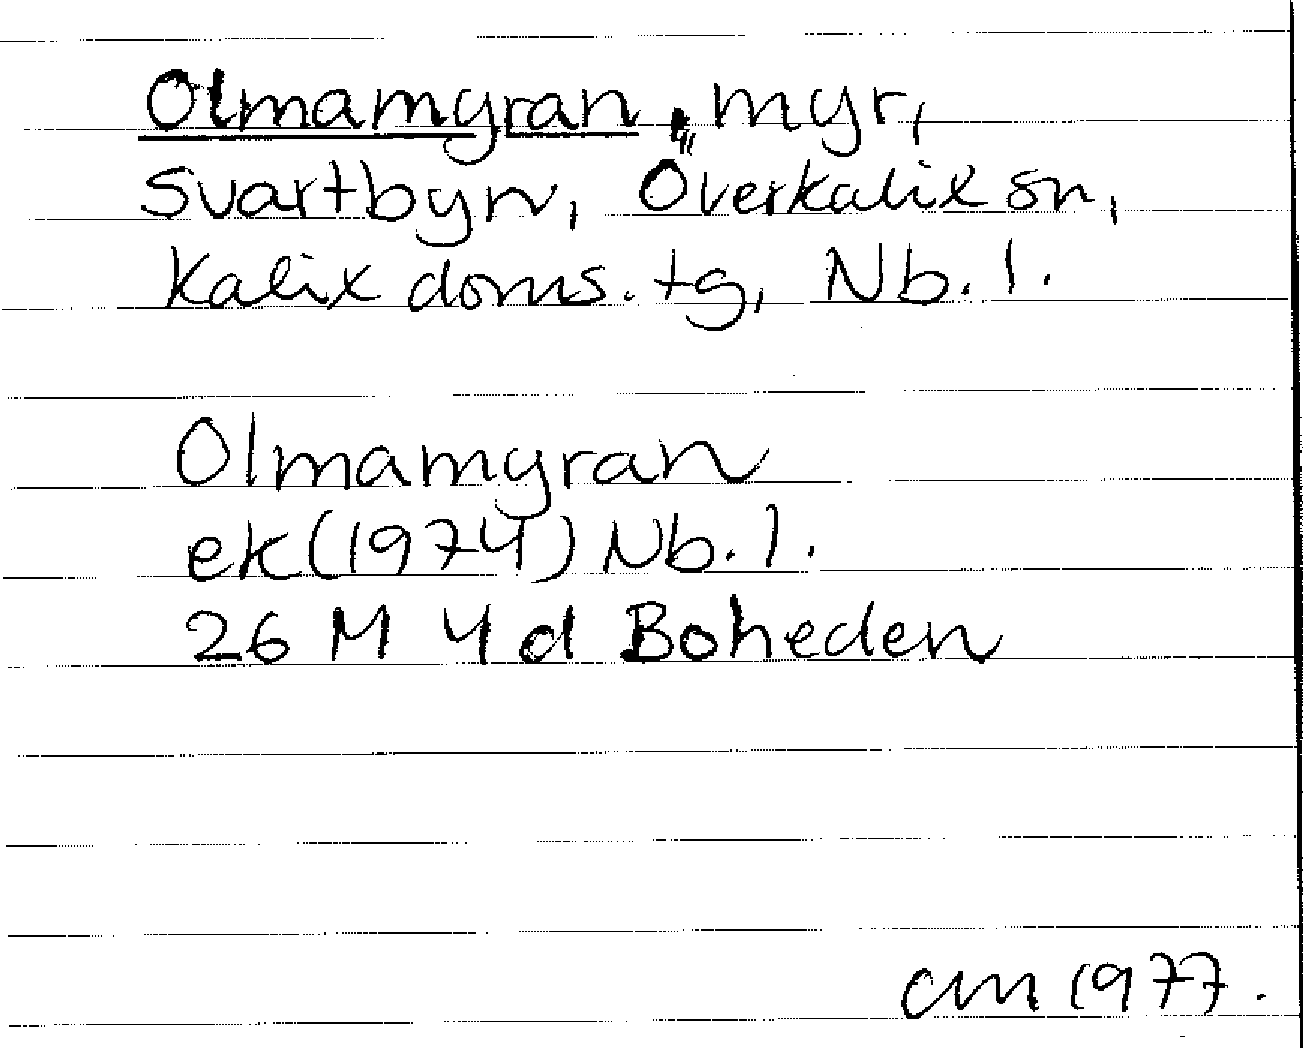 Olmamyran, myr,
Svartbyn, Överkalix sn,
Kalix doms. tg, Nb. l.
Olmamyran
ek (1974) Nb. l.
26 M 4 d Boheden
cm 1977.